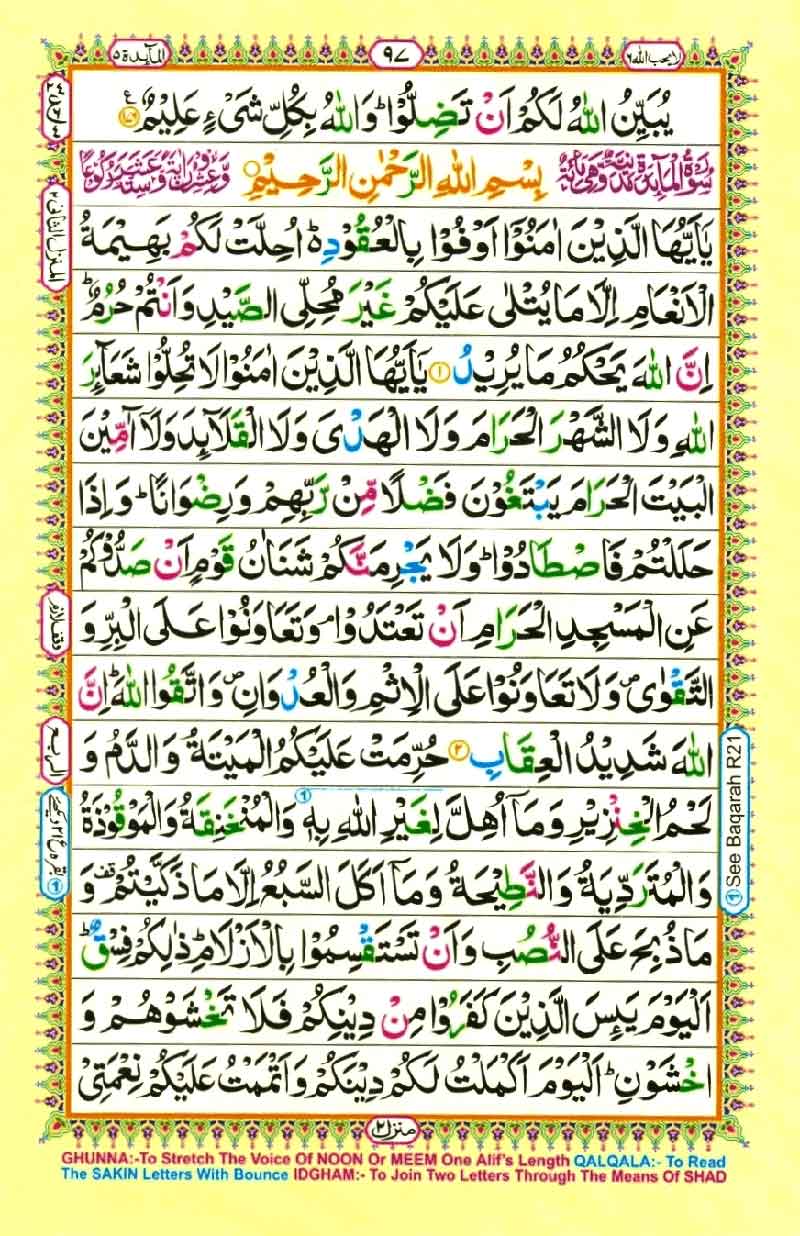 لا يحب الله ٦
٩٧
المآئدة ٥
يُبَيِّنُ اللّٰهُ لَكُمْ اَنْ تَضِلُّوْا ؕ وَاللّٰهُ بِكُلِّ شَىْءٍ عَلِيْمٌ ﴿۱۷۶﴾ ع
بِسْمِ اللّٰهِ الرَّحْمٰنِ الرَّحِيْمِ
يٰۤاَيُّهَا الَّذِيْنَ اٰمَنُوْۤا اَوْفُوْا بِالْعُقُوْدِ ؕ اُحِلَّتْ لَكُمْ بَهِيْمَةُ
الْاَنْعَامِ اِلَّا مَا يُتْلٰى عَلَيْكُمْ غَيْرَ مُحِلِّى الصَّيْدِ وَاَنْتُمْ حُرُمٌ ؕ
اِنَّ اللّٰهَ يَحْكُمُ مَا يُرِيْدُ ﴿۱﴾ يٰۤاَيُّهَا الَّذِيْنَ اٰمَنُوْا لَا تُحِلُّوْا شَعَآئِرَ
اللّٰهِ وَلَا الشَّهْرَ الْحَرَامَ وَلَا الْهَدْىَ وَلَا الْقَلَآئِدَ وَلَاۤ آمِّيْنَ
الْبَيْتَ الْحَرَامَ يَبْتَغُوْنَ فَضْلًا مِّنْ رَّبِّهِمْ وَرِضْوَانًا ؕ وَاِذَا
حَلَلْتُمْ فَاصْطَادُوْا ؕ وَلَا يَجْرِمَنَّكُمْ شَنَاٰنُ قَوْمٍ اَنْ صَدُّوْكُمْ
عَنِ الْمَسْجِدِ الْحَرَامِ اَنْ تَعْتَدُوْا ۘ وَتَعَاوَنُوْا عَلَى الْبِرِّ وَ
التَّقْوٰى ۪ وَلَا تَعَاوَنُوْا عَلَى الْاِثْمِ وَالْعُدْوَانِ ۪ وَاتَّقُوا اللّٰهَ ؕ اِنَّ
اللّٰهَ شَدِيْدُ الْعِقَابِ ﴿۲﴾ حُرِّمَتْ عَلَيْكُمُ الْمَيْتَةُ وَالدَّمُ وَ
لَحْمُ الْخِنْزِيْرِ وَمَاۤ اُهِلَّ لِغَيْرِ اللّٰهِ بِهٖ وَالْمُنْخَنِقَةُ وَالْمَوْقُوْذَةُ
وَالْمُتَرَدِّيَةُ وَالنَّطِيْحَةُ وَمَاۤ اَكَلَ السَّبُعُ اِلَّا مَا ذَكَّيْتُمْ ۫ وَ
مَا ذُبِحَ عَلَى النُّصُبِ وَاَنْ تَسْتَقْسِمُوْا بِالْاَزْلَامِ ؕ ذٰلِكُمْ فِسْقٌ ؕ
اَلْيَوْمَ يَئِسَ الَّذِيْنَ كَفَرُوْا مِنْ دِيْنِكُمْ فَلَا تَخْشَوْهُمْ وَ
اخْشَوْنِ ؕ اَلْيَوْمَ اَكْمَلْتُ لَكُمْ دِيْنَكُمْ وَاَتْمَمْتُ عَلَيْكُمْ نِعْمَتِىْ
المنزل الثانى ٢
الربع
See Baqarah R21
منزل ٢
GHUNNA:-To Stretch The Voice Of NOON Or MEEM One Alif's Length QALQALA:- To Read
The SAKIN Letters With Bounce IDGHAM:- To Join Two Letters Through The Means Of SHAD